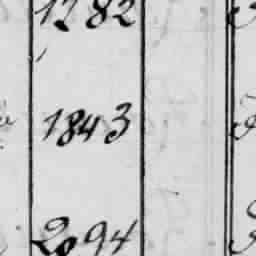 1282
1843
2094